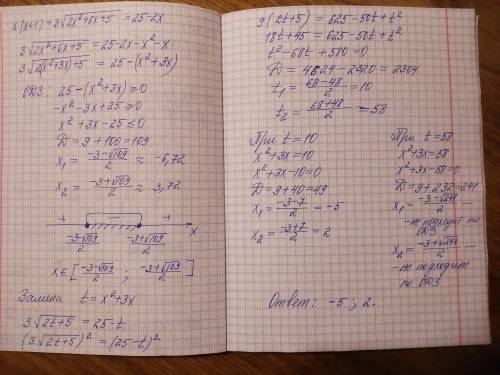 x(x+1)+3√(2x²+6x+5) = 25-2x
3√(2x²+6x+5) = 25-2x-x²-x
3√(2(x²+3x)+5) = 25-(x²+3x)
ОДЗ: 25-(x²+3x)≥0
-x²-3x+25≥0
x²+3x-25≤0
D=9+100=109
x₁ = (-3-√109)/2 ≈ -6,72
x₂ = (-3+√109)/2 ≈ 3,72
+ — +
(-3-√109)/2 (-3+√109)/2 x
x∈[(-3-√109)/2 ; (-3+√109)/2]
Замена t=x²+3x
3√(2t+5) = 25-t
(3√(2t+5))² = (25-t)²
9(2t+5) = 625-50t+t²
18t+45 = 625-50t+t²
t²-68t+580=0
D=4624-2320=2304
t₁ = (68-48)/2 = 10
t₂ = (68+48)/2 = 58
При t=10
x²+3x=10
x²+3x-10=0
D=9+40=49
x₁ = (-3-7)/2 = -5
x₂ = (-3+7)/2 = 2
При t=58
x²+3x=58
x²+3x-58=0
D=9+232=241
x₁ = (-3-√241)/2 —
-не подходит по
ОДЗ
x₂ = (-3+√241)/2 —
-не подходит
по ОДЗ
Ответ: -5; 2.